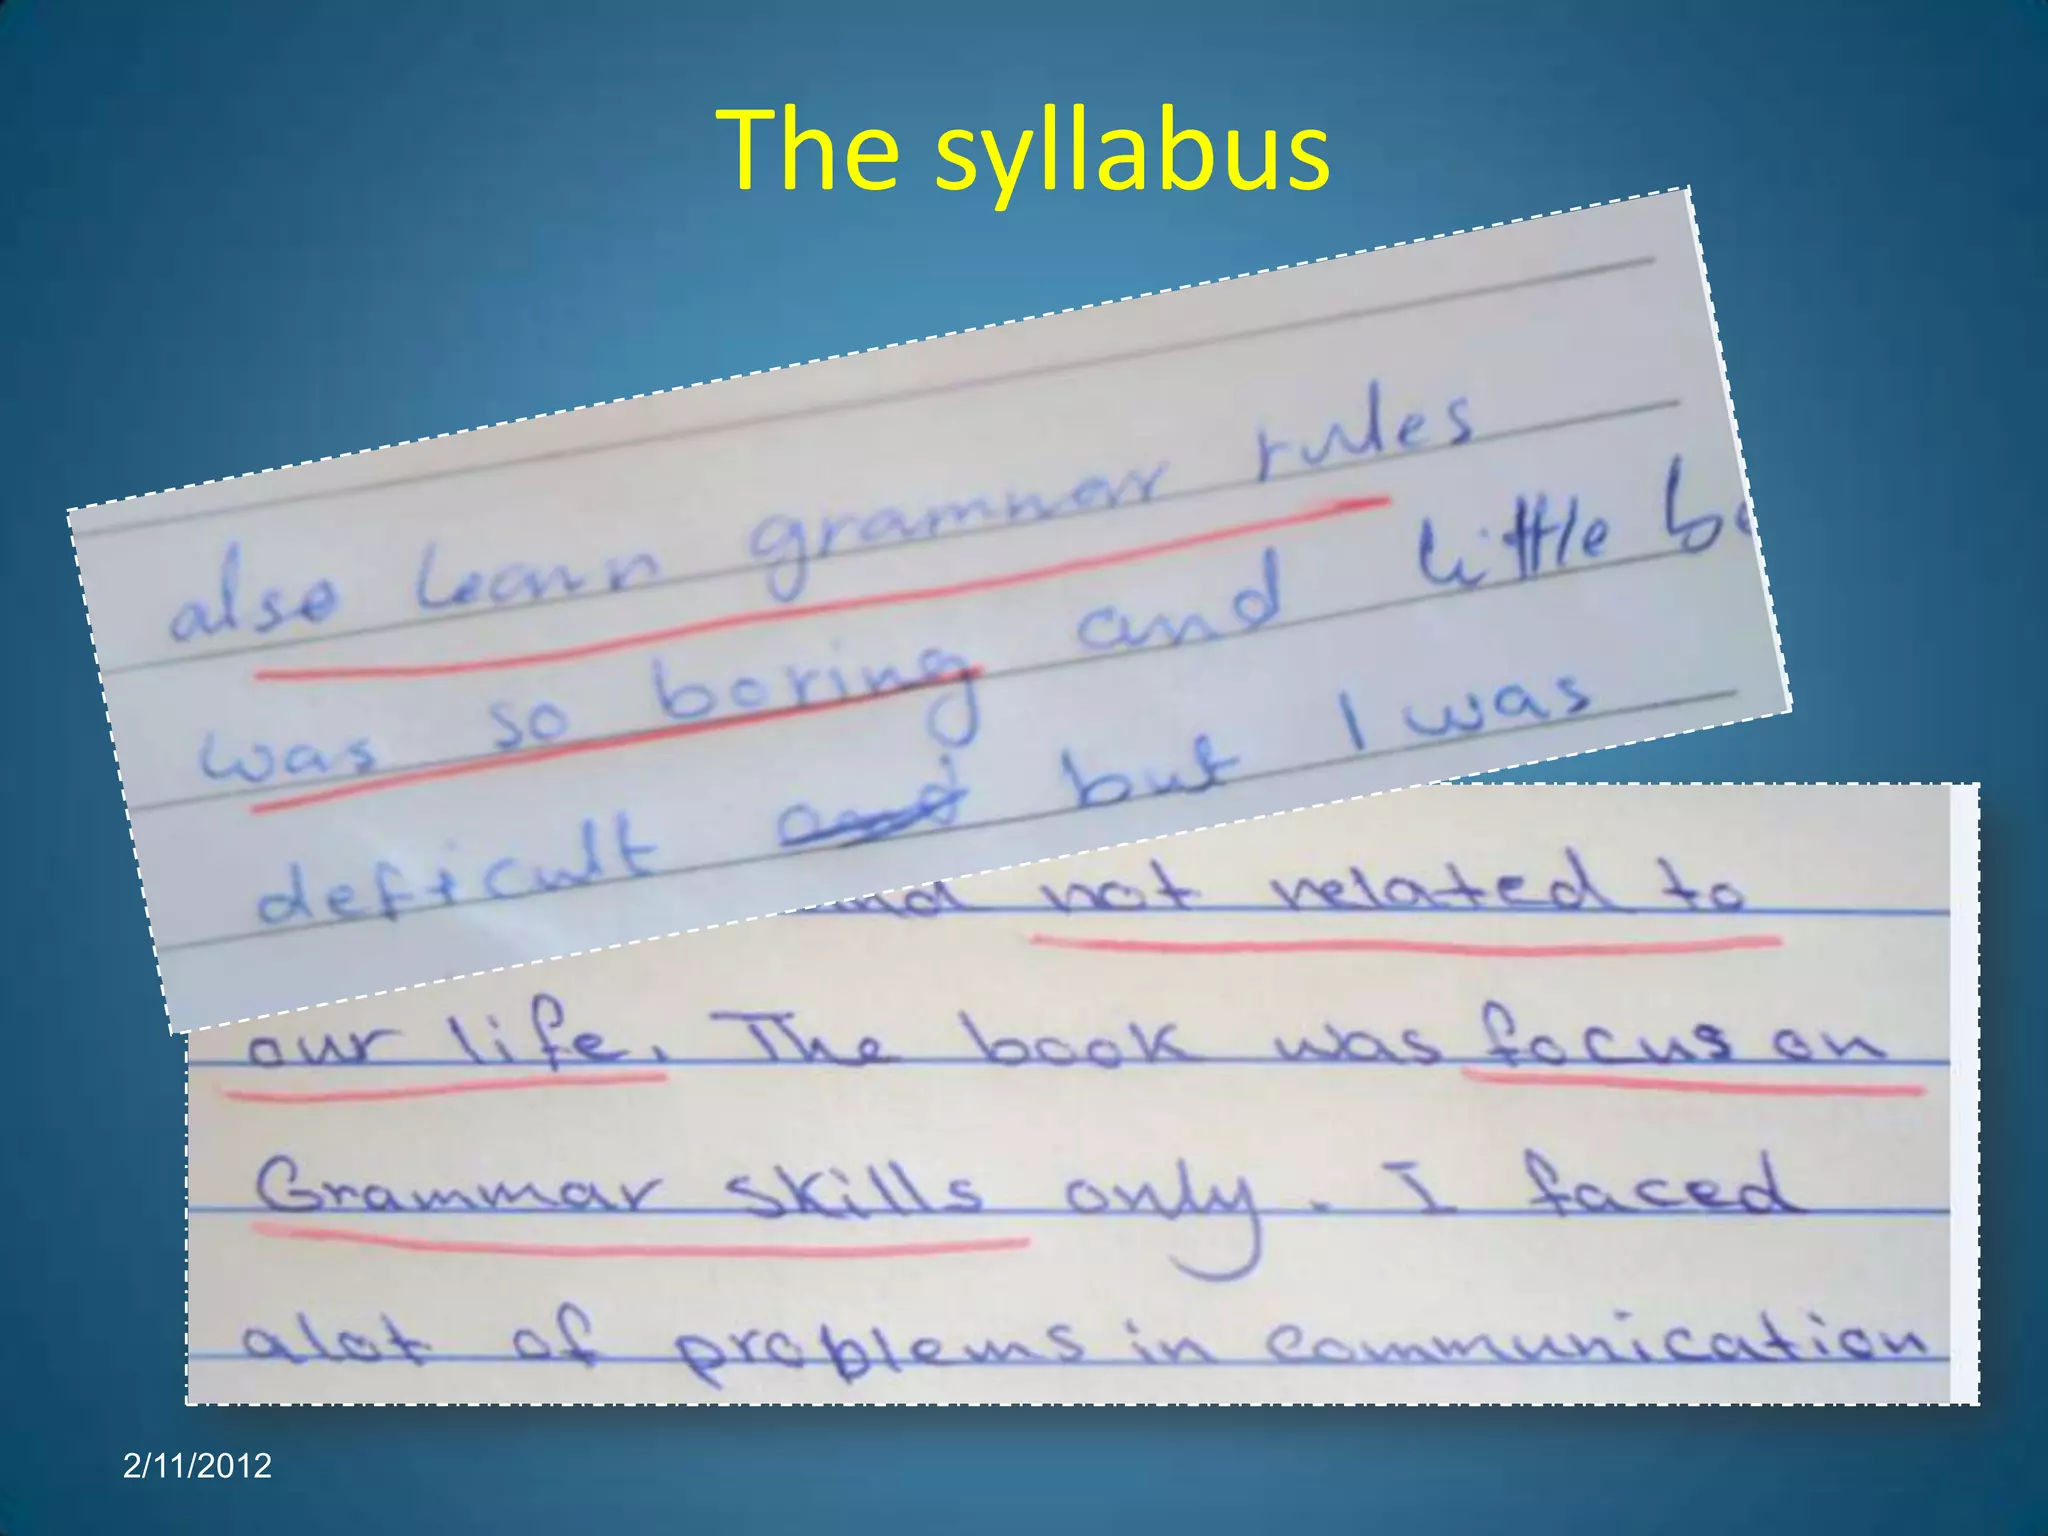 The syllabus
also learn grammar rules
was so boring and little
defticult and but I was
not related to
our life. The book was focus on
Grammar skills only. I faced
alot of problems in communication
2/11/2012